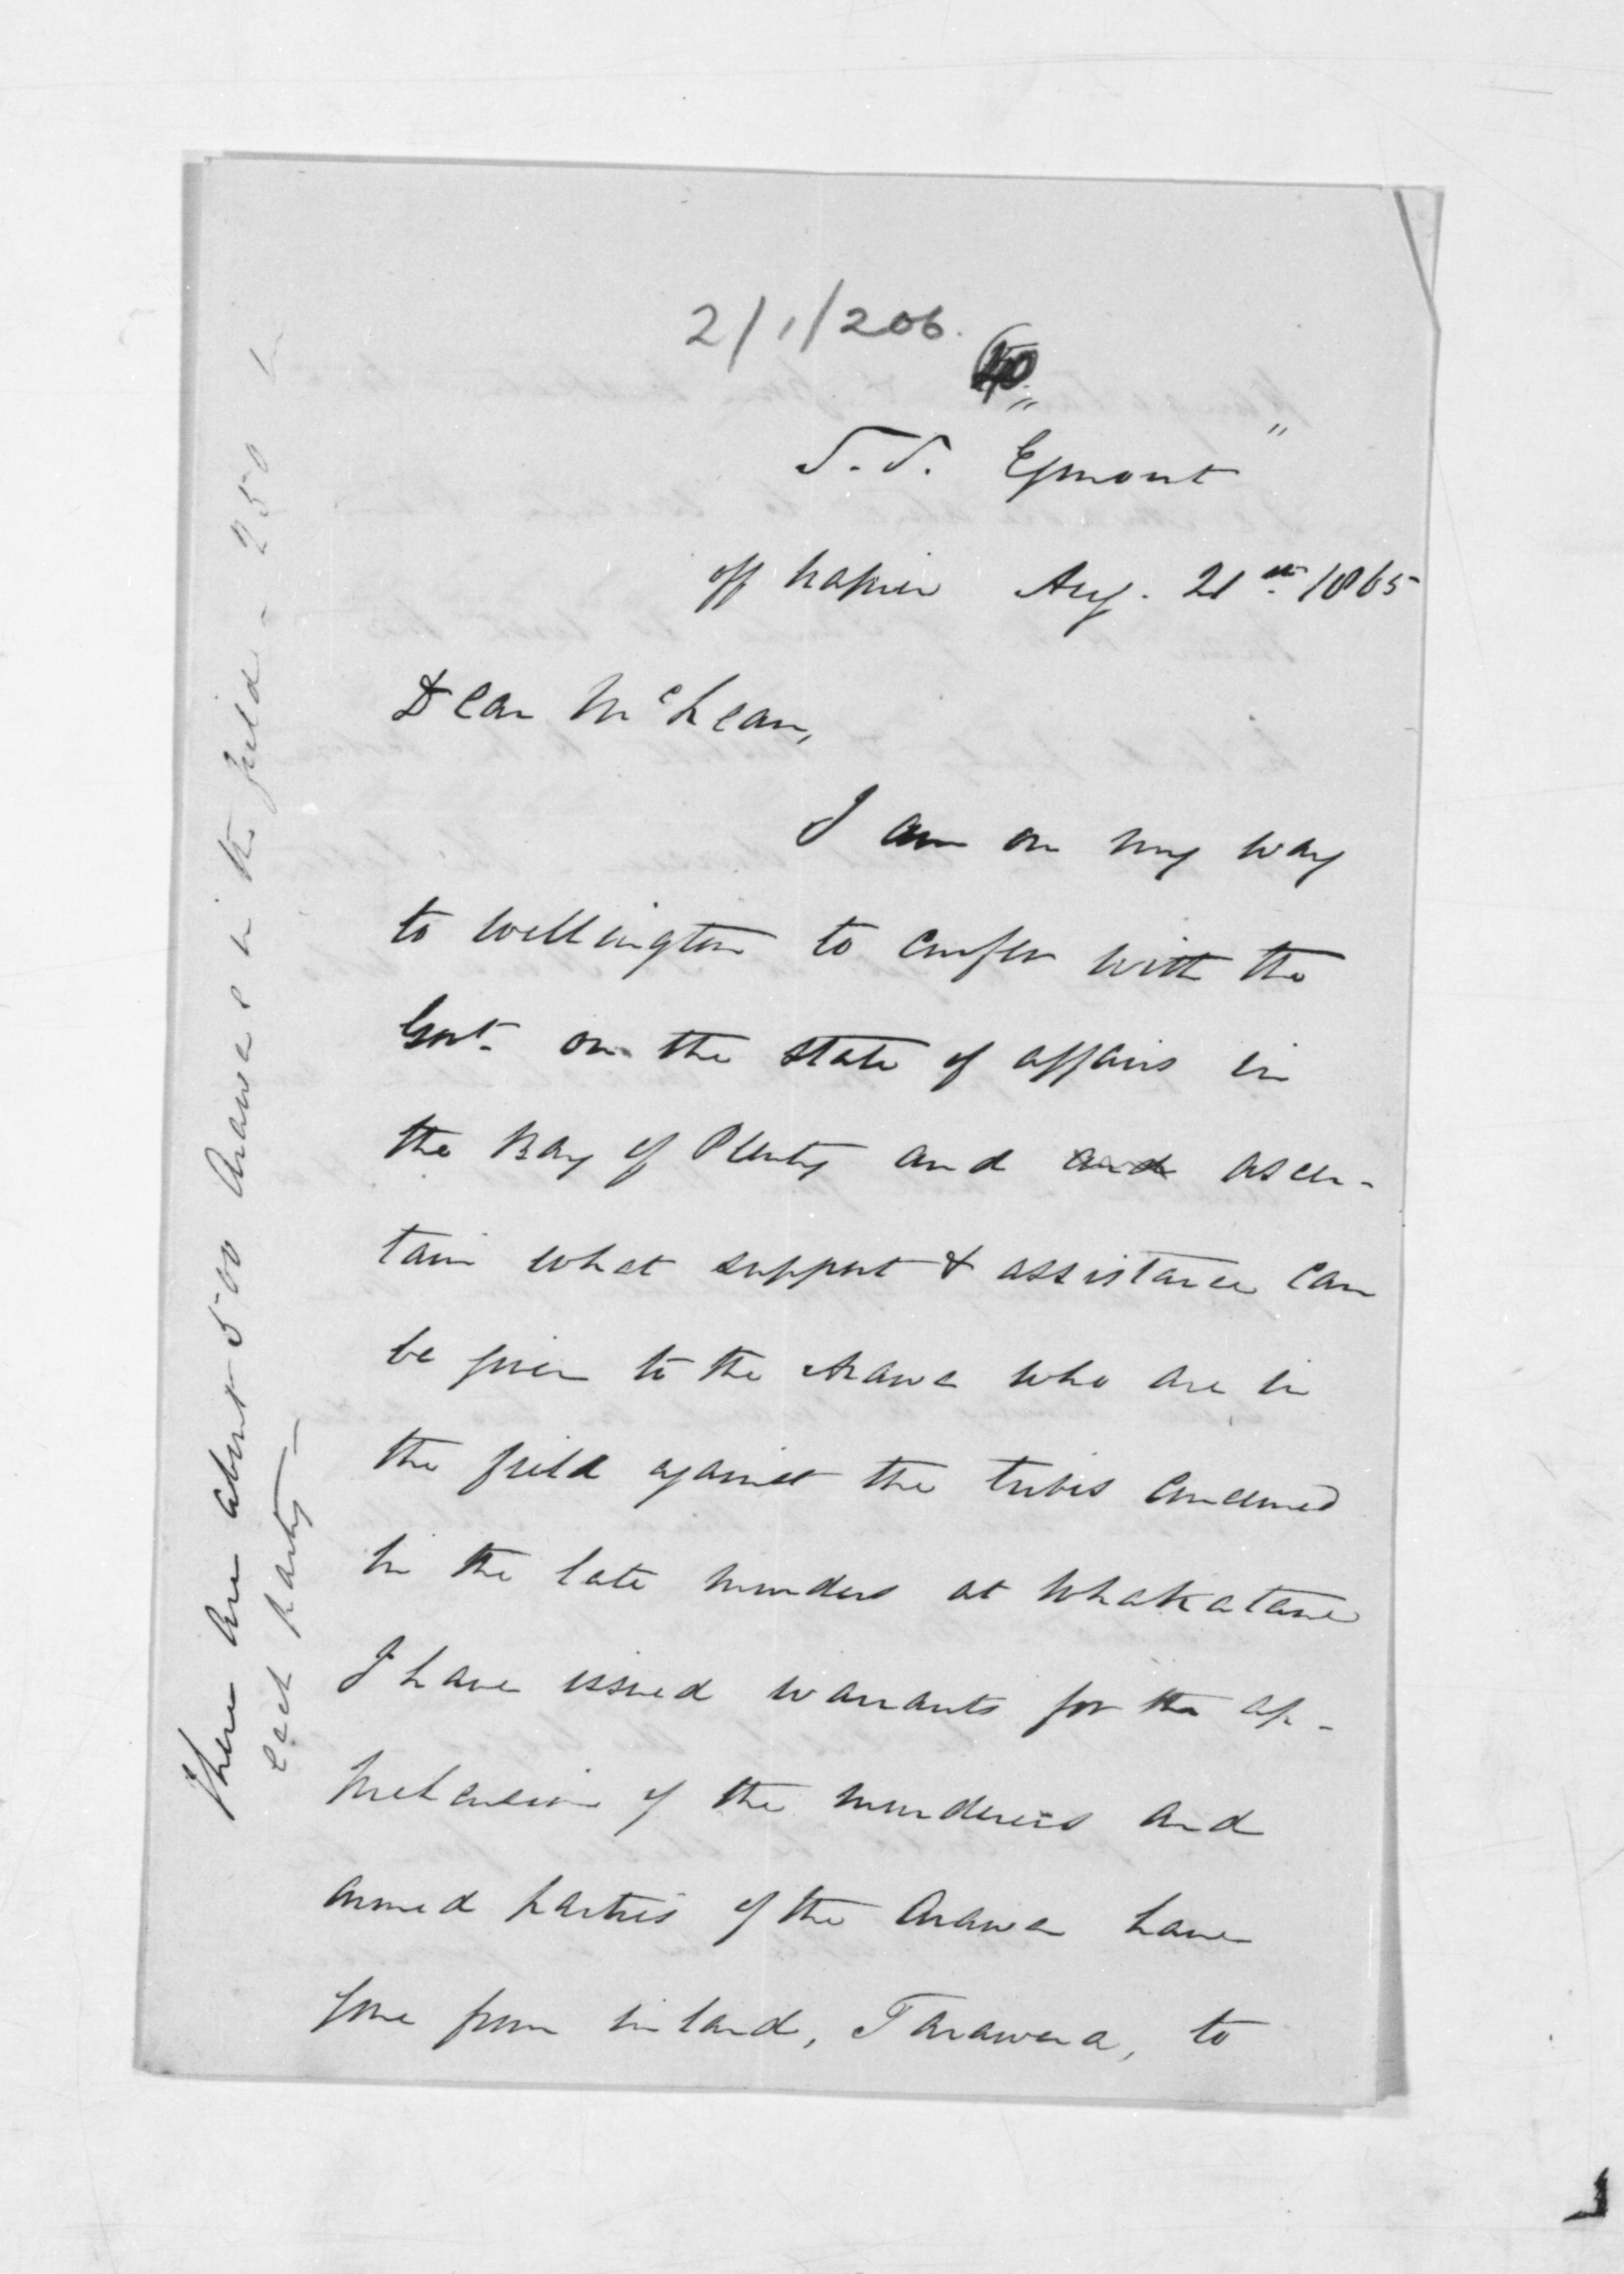 2/1/206.
S.S. "Egmont"
off Napier Aug. 21st. 1865
Dear McLean,
I am on my way
to Wellington to confer with the
Govt. on the state of affairs in
the Bay of Plenty and and ascer-
tain what support & assistance can
be given to the Arawa who are in
the field against the tribes concerned
in the late murders at Whakatane
I have issued warrants for the ap-
prehension of the murderers and
armed parties of the Arawa have
gone from inland, Tarawera, to
There are about 500 Arawas in the field - 250 in
each party -